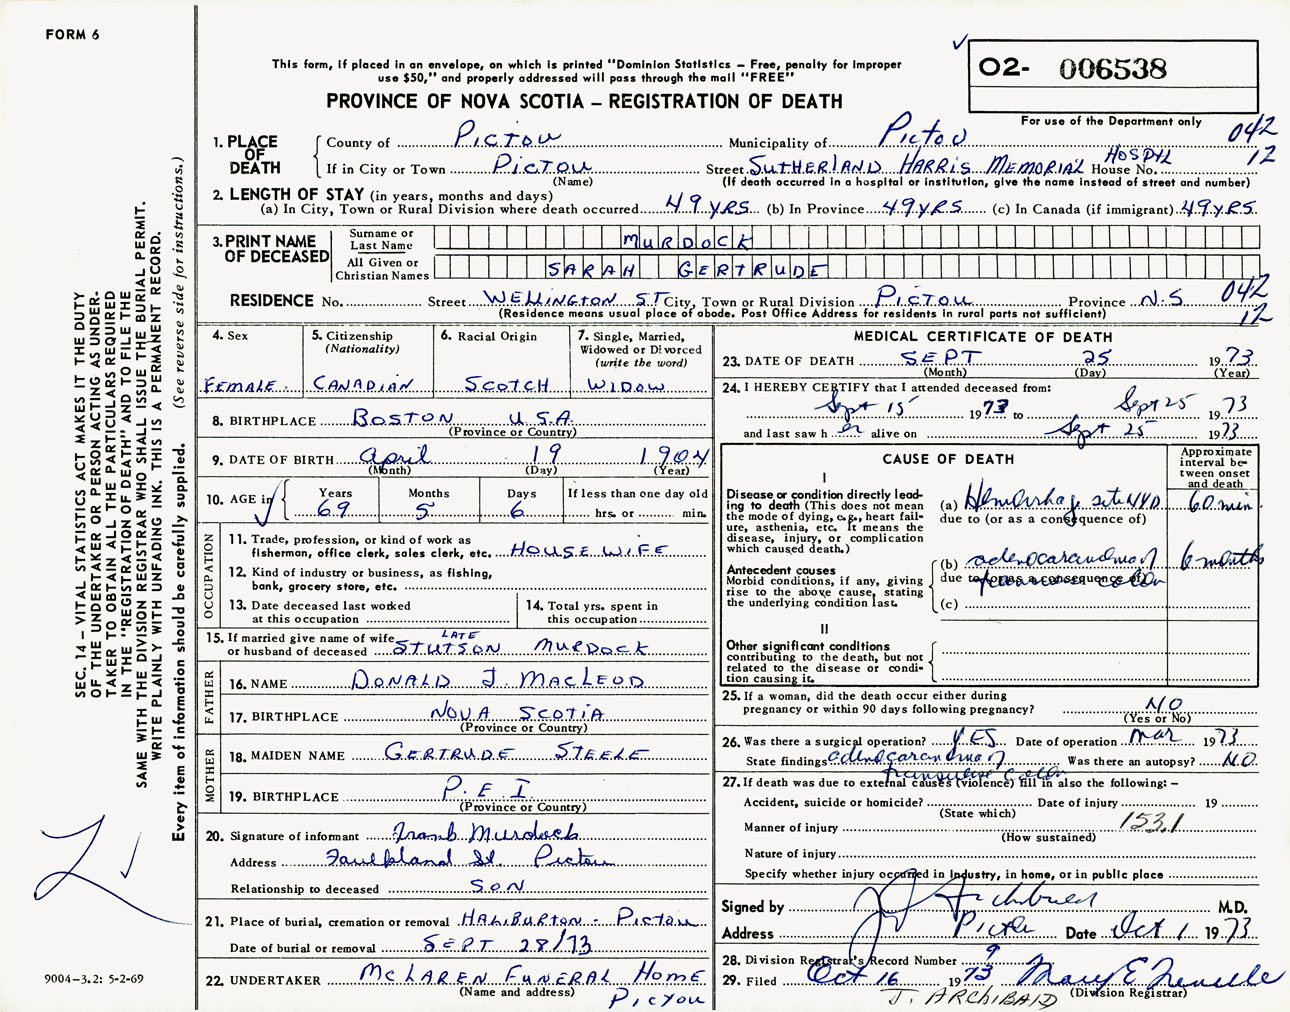 FORM 6
This form, if placed in an envelope, on which is printed "Dominion Statistics – Free, penalty for improper
use $50," and properly addressed will pass through the mail "FREE"
PROVINCE OF NOVA SCOTIA – REGISTRATION OF DEATH
O2- 006538
For use of the Department only
1. PLACE OF DEATH
County of PICTOU Municipality of PICTOU 042
If in City or Town PICTOU Street SUTHERLAND HARRIS MEMORIAL HOSPTL House No. 12
(Name) (If death occurred in a hospital or institution, give the name instead of street and number)
2. LENGTH OF STAY (in years, months and days)
(a) In City, Town or Rural Division where death occurred 49 YRS (b) In Province 49 YRS (c) In Canada (if immigrant) 49 YRS.
3. PRINT NAME OF DECEASED
Surname or Last Name MURDOCK
All Given or Christian Names SARAH GERTRUDE
RESIDENCE No. Street WELLINGTON ST City, Town or Rural Division PICTOU Province N.S 042
(Residence means usual place of abode. Post Office Address for residents in rural parts not sufficient) 12
4. Sex FEMALE
5. Citizenship (Nationality) CANADIAN
6. Racial Origin SCOTCH
7. Single, Married, Widowed or Divorced (write the word) WIDOW
8. BIRTHPLACE BOSTON U.S.A.
(Province or Country)
9. DATE OF BIRTH April 19 1904
(Month) (Day) (Year)
10. AGE in Years 69 Months 5 Days 6 If less than one day old hrs. or min.
OCCUPATION
11. Trade, profession, or kind of work as
fisherman, office clerk, sales clerk, etc. HOUSE WIFE
12. Kind of industry or business, as fishing,
bank, grocery store, etc.
13. Date deceased last worked
at this occupation
14. Total yrs. spent in
this occupation
15. If married give name of wife LATE
or husband of deceased STUTSON MURDOCK
FATHER
16. NAME DONALD J. MACLEOD
17. BIRTHPLACE NOVA SCOTIA
(Province or Country)
MOTHER
18. MAIDEN NAME GERTRUDE STEELE
19. BIRTHPLACE P.E.I
(Province or Country)
20. Signature of informant Frank Murdock
Address St Pictou
Relationship to deceased SON
21. Place of burial, cremation or removal HALIBURTON - PICTOU
Date of burial or removal SEPT 28/73
22. UNDERTAKER MCLAREN FUNERAL HOME
(Name and address) PICTOU
MEDICAL CERTIFICATE OF DEATH
23. DATE OF DEATH SEPT 25 1973
(Month) (Day) (Year)
24. I HEREBY CERTIFY that I attended deceased from:
Sept 15 1973 to Sept 25 1973
and last saw h er alive on Sept 25 1973
CAUSE OF DEATH
Approximate interval between onset and death
I
Disease or condition directly lead-
ing to death (This does not mean
the mode of dying, e.g., heart fail-
ure, asthenia, etc. It means the
disease, injury, or complication
which caused death.)
(a) Hemorrhage site NYD 60 min.
due to (or as a consequence of)
Antecedent causes
Morbid conditions, if any, giving
rise to the above cause, stating
the underlying condition last.
(b) adenocarcinoma of 6 months
due to (or as a consequence of)
transverse colon
(c)
II
Other significant conditions
contributing to the death, but not
related to the disease or condi-
tion causing it.
25. If a woman, did the death occur either during
pregnancy or within 90 days following pregnancy? NO
(Yes or No)
26. Was there a surgical operation? YES Date of operation Mar 1973
State findings adenocarcinoma of Was there an autopsy? NO
transverse colon
27. If death was due to external causes (violence) fill in also the following: –
Accident, suicide or homicide? Date of injury 19
(State which)
Manner of injury 153.1
(How sustained)
Nature of injury
Specify whether injury occurred in industry, in home, or in public place
Signed by J Archibald M.D.
Address Pictou Date Oct 1 1973
28. Division Registrar's Record Number 9
29. Filed Oct 16 1973 Mary E
J. ARCHIBALD (Division Registrar)
SEC. 14 – VITAL STATISTICS ACT MAKES IT THE DUTY
OF THE UNDERTAKER OR PERSON ACTING AS UNDER-
TAKER TO OBTAIN ALL THE PARTICULARS REQUIRED
IN THE "REGISTRATION OF DEATH" AND TO FILE THE
SAME WITH THE DIVISION REGISTRAR WHO SHALL ISSUE THE BURIAL PERMIT.
WRITE PLAINLY WITH UNFADING INK. THIS IS A PERMANENT RECORD.
Every item of information should be carefully supplied. (See reverse side for instructions.)
9004–3.2: 5-2-69